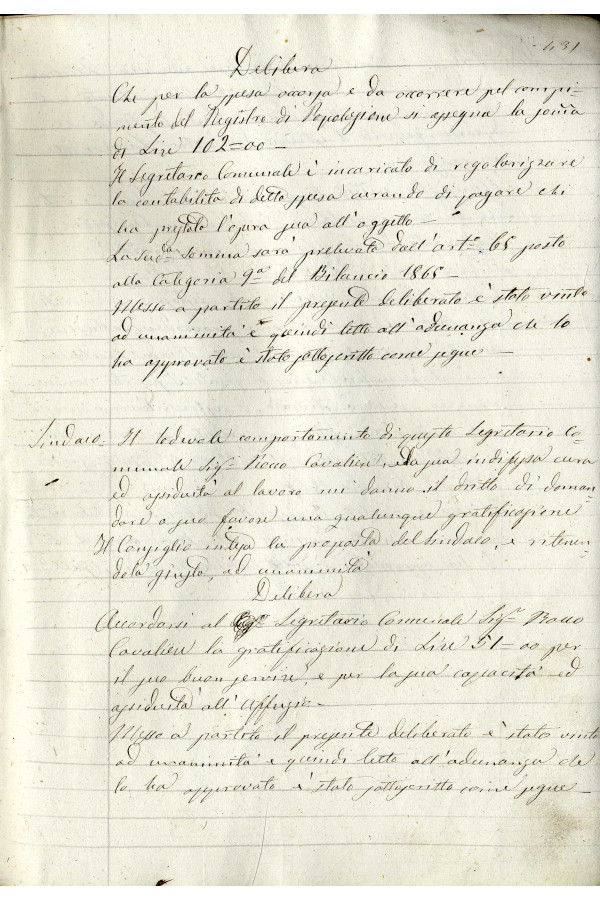 431
Delibera
Che per la spesa occorsa e da occorrere pel compi-
mento del Registro di Popolazione si assegna la somma
di Lire 102=00 -
Il Segretario Comunale è incaricato di regolarizzare
la contabilità di detta spesa curando di pagare chi
ha prestato l'opera sua all'oggetto -
La sudta somma sarà prelevata dall'arto 65 posto
alla Categoria 9a del Bilancio 1865 -
Messo a partito il presente deliberato è stato vinto
ad unanimità e quindi letto all'adunanza che lo
ha approvato è stato sottoscritto come segue -
Sindaco - Il lodevole comportamento di questo Segretario Co-
munale Sigr Rocco Cavalieri, e la sua indefessa cura
ed assiduità al lavoro mi danno il dritto di doman-
dare a suo favore una qualunque gratificazione
Il Consiglio intesa la proposta del Sindaco, e ritenen-
dola giusta, ad unanimità
Delibera
Accordarsi al Segretario Comunale Sigr Rocco
Cavalieri la gratificazione di Lire 51=00 per
il suo buon servire, e per la sua capacità ed
assiduità all'Uffizio -
Messo a partito il presente deliberato è stato vinto
ad unanimità e quindi letto all'adunanza che
lo ha approvato è stato sottoscritto come segue -